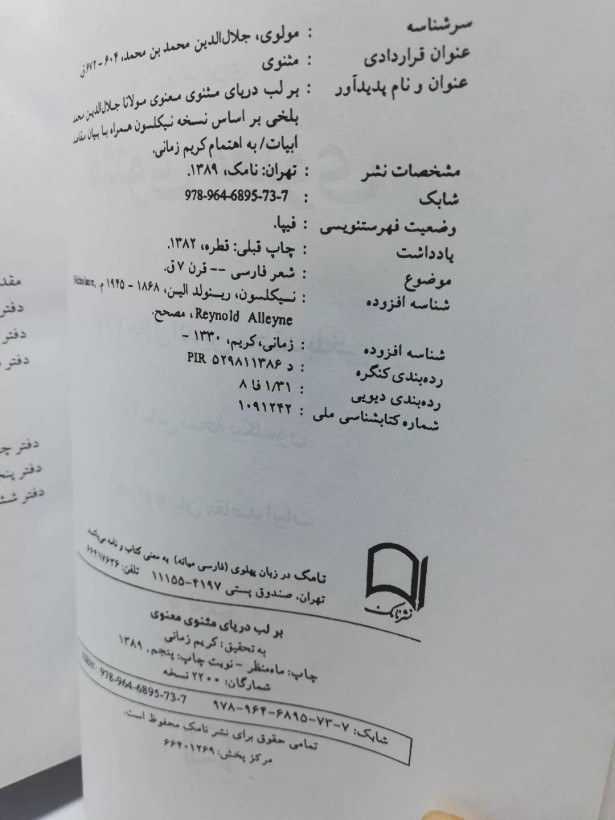 سرشناسه : مولوی، جلال‌الدین محمد بن محمد، ۶۰۴ - ۶۷۲ ق
عنوان قراردادی : مثنوی
عنوان و نام پدیدآور : بر لب دریای مثنوی معنوی مولانا جلال‌الدین محمد
بلخی بر اساس نسخه نیکلسون همراه با بیان مقاصد
ابیات/ به اهتمام کریم زمانی.
مشخصات نشر : تهران: نامک، ۱۳۸۹.
شابک : 978-964-6895-73-7
وضعیت فهرستنویسی : فیپا.
یادداشت : چاپ قبلی: قطره، ۱۳۸۲.
موضوع : شعر فارسی -- قرن ۷ ق.
شناسه افزوده : نیکلسون، رینولد الین، ۱۸۶۸ - ۱۹۴۵ م. Nicholson,
Reynold Alleyne، مصحح.
شناسه افزوده : زمانی، کریم، ۱۳۳۰ -
رده‌بندی کنگره : PIR ۵۲۹۸۱۱۳۸۶ د
رده‌بندی دیویی : ۸ فا ۱/۳۱
شماره کتابشناسی ملی : ۱۰۹۱۲۴۲
دفتر
دفتر
دفتر پنجم
دفتر شش
نشر نامک
نامک در زبان پهلوی (فارسی میانه) به معنی کتاب و نامه می‌باشد.
تهران، صندوق پستی ۴۱۹۷-۱۱۱۵۵ تلفن: ۶۶۴۱۷۶۳۶
بر لب دریای مثنوی معنوی
به تحقیق: کریم زمانی
چاپ: ماه‌منظر - نوبت چاپ: پنجم، ۱۳۸۹
شمارگان: ۲۲۰۰ نسخه
شابک: ۷-۷۳-۶۸۹۵-۹۶۴-۹۷۸ ISBN: 978-964-6895-73-7
تمامی حقوق برای نشر نامک محفوظ است.
مرکز پخش: ۶۶۴۰۱۲۶۹